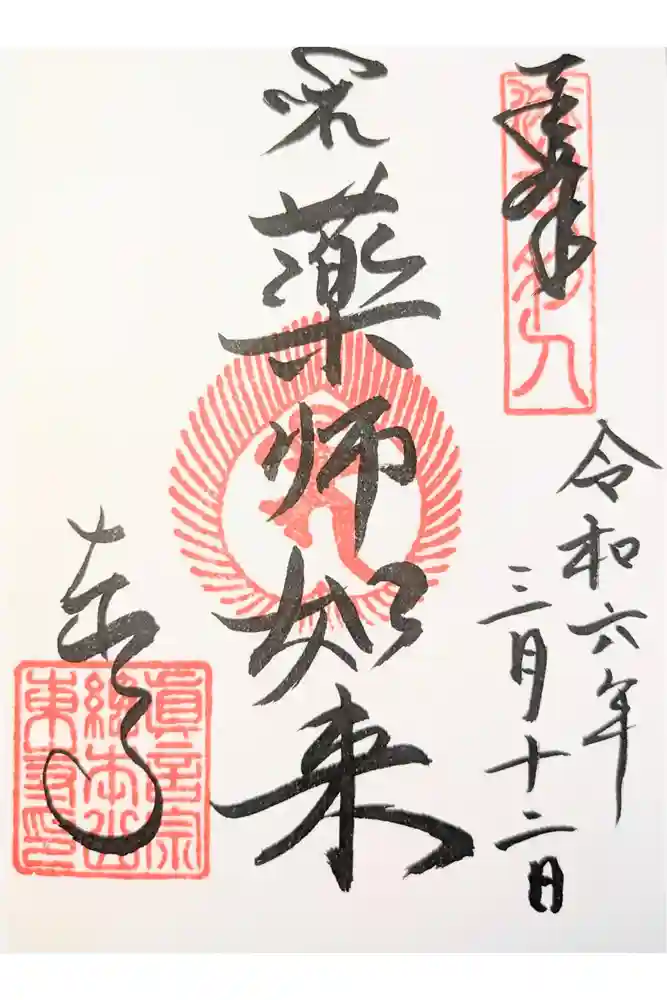 奉拝
令和六年
三月十二日
薬師如来
東寺
真言宗
総本山
東寺印